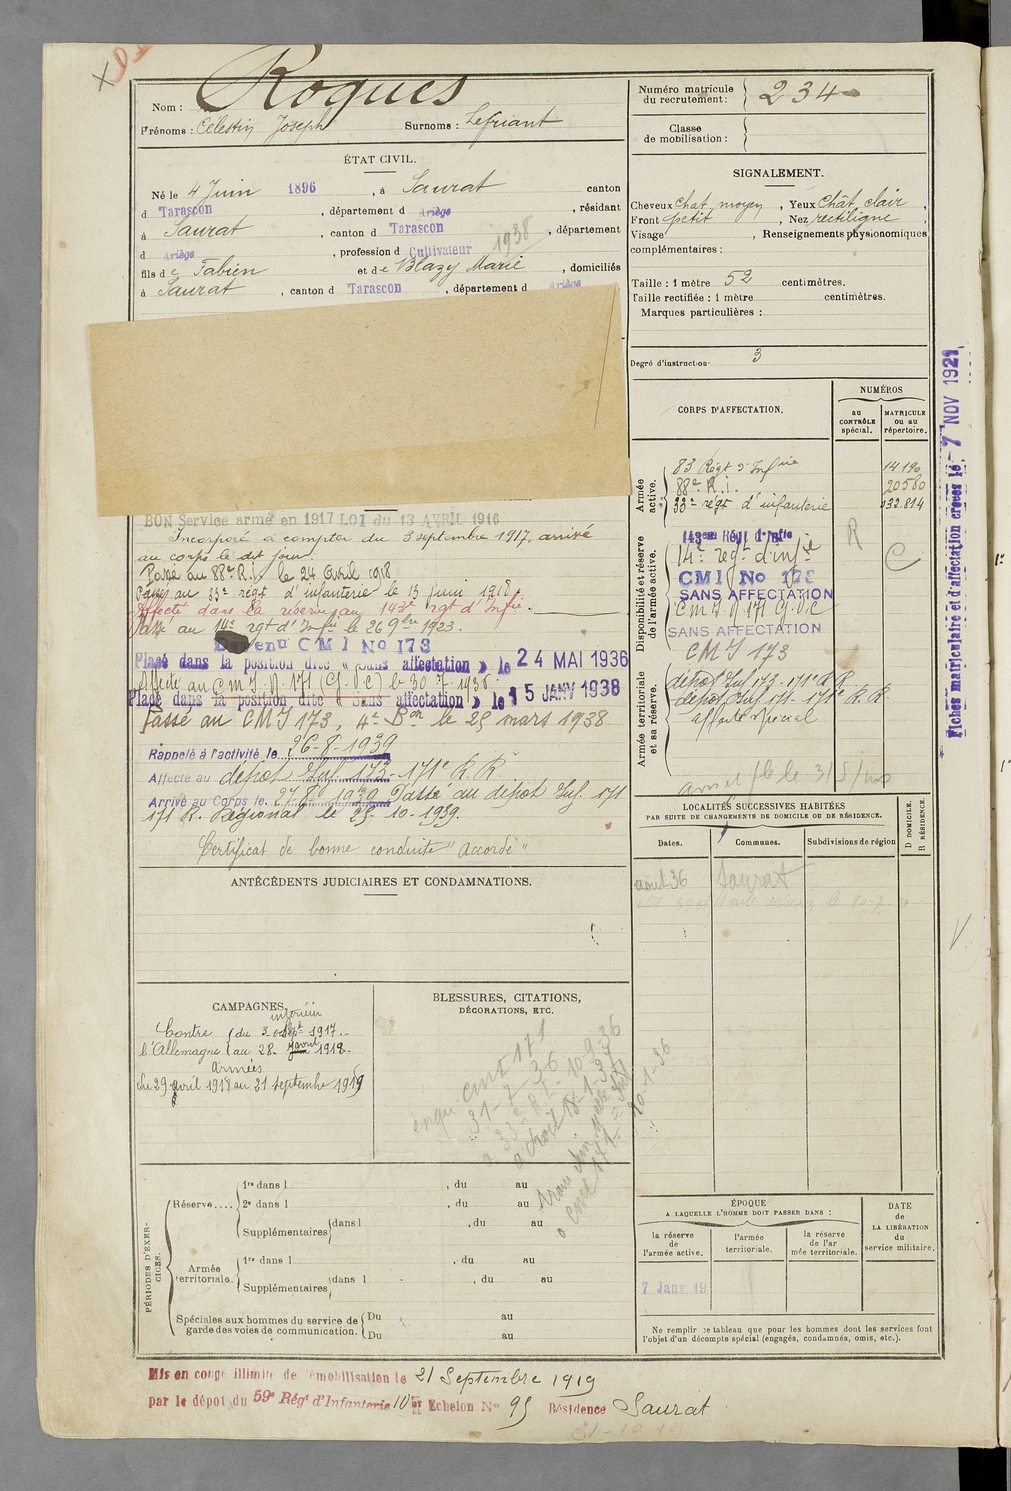 Roques
Nom :
Prénoms : Célestin Joseph Surnoms : Lefriant
Numéro matricule du recrutement : 234
Classe de mobilisation :
ÉTAT CIVIL.
Né le 4 Juin 1896, à Saurat canton
d Tarascon, département d Ariège, résidant
à Saurat, canton d Tarascon, département
d Ariège, profession d Cultivateur 1938
fils de Fabien et de Blazy Marie, domiciliés
à Saurat, canton d Tarascon, département d Ariège
SIGNALEMENT.
Cheveux chat. moyen, Yeux chât. clair,
Front petit, Nez rectiligne,
Visage , Renseignements physionomiques
complémentaires :
Taille : 1 mètre 52 centimètres.
Taille rectifiée : 1 mètre centimètres.
Marques particulières :
Degré d'instruction. 3
CORPS D'AFFECTATION.
NUMÉROS
au CONTRÔLE spécial.
MATRICULE ou au répertoire.
Armée active.
83 Régt d'Infie 14190
88e R.I. 20580
33e régt d'infanterie 032.814
Disponibilité et réserve de l'armée active.
143em Régt d'Infie R
14e regt d'infie C
CMI No 173
SANS AFFECTATION
CMI. N 171
SANS AFFECTATION
CMI 173
Armée territoriale et sa réserve.
dépôt Inf 173 - 171e R.R.
dépôt Inf 171 - 171e R.R.
affecté spécial
BON Service armé en 1917 LOI du 13 AVRIL 1916
Incorporé à compter du 3 septembre 1917, arrivé
au corps le dit jour.
Passé au 88e R.I. le 24 avril 1918
Passé au 33e régt d'infanterie le 13 juin 1918.
Affecté dans la réserve au 143e rgt d'Infie.
Passé au 14e rgt d'Infie le 26 9bre 1923.
Devenu CMI No 173
Placé dans la position dite « Sans affectation » le 24 MAI 1936
Affecté au CMI. N. 171
Placé dans la position dite « Sans affectation » le 15 JANV 1938
Passé au CMI 173, 4e Bon le 25 mars 1938
Rappelé à l'activité le 26-8-1939
Affecté au dépôt Inf. 173 - 171e R.R.
Arrivé au Corps le 27.8.1939 Passé au dépôt Inf. 171
171 R. Régional le 25-10-1939.
Certificat de bonne conduite "Accordé"
Fiches matriculaire et d'affectation créées le 7 NOV 1921
ANTÉCÉDENTS JUDICIAIRES ET CONDAMNATIONS.
LOCALITÉS SUCCESSIVES HABITÉES
PAR SUITE DE CHANGEMENTS DE DOMICILE OU DE RÉSIDENCE.
Dates. Communes. Subdivisions de région
D DOMICILE.
R RÉSIDENCE.
août 36 Saurat
CAMPAGNES.
intérieur
Contre l'Allemagne
du 3 Sept 1917
au 28 avril 1918.
Armées
du 29 avril 1918 au 21 septembre 1919
BLESSURES, CITATIONS,
DÉCORATIONS, ETC.
CMI 171
31-7-36
PÉRIODES D'EXERCICES.
Réserve....
1re dans l , du au
2e dans l , du au
Supplémentaires dans l , du au
Armée territoriale.
1re dans l , du au
Supplémentaires dans l , du au
Spéciales aux hommes du service de garde des voies de communication.
Du au
Du au
ÉPOQUE
A LAQUELLE L'HOMME DOIT PASSER DANS :
la réserve de l'armée active.
l'armée territoriale.
la réserve de l'armée territoriale.
DATE de LA LIBÉRATION du service militaire.
7 Janv 19
Ne remplir ce tableau que pour les hommes dont les services font
l'objet d'un décompte spécial (engagés, condamnés, omis, etc.).
Mis en congé illimité de démobilisation le 21 Septembre 1919
par le dépôt du 59e Régt d'Infanterie 10e Echelon No 95 Résidence Saurat